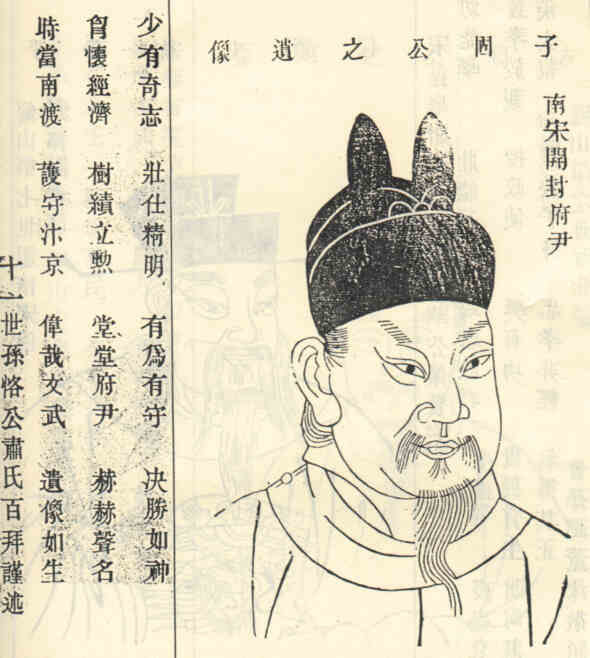 子固公之遺像
南宋開封府尹
少有奇志 壯仕精明 有爲有守 决勝如神
胷懷經濟 樹績立勲 堂堂府尹 赫赫聲名
時當南渡 護守汴京 偉哉文武 遺像如生
十一世孫恪公肅氏百拜謹述